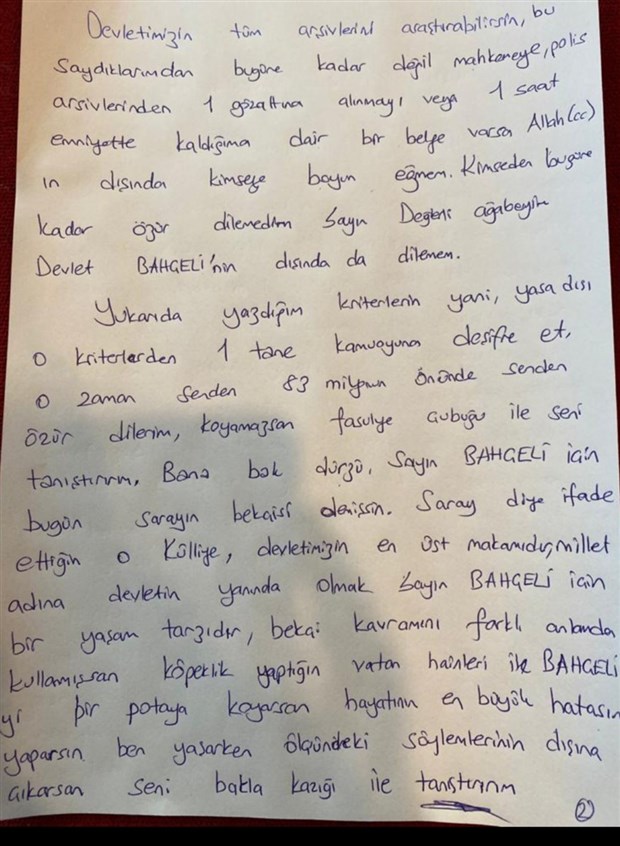 Devletimizin tüm arşivlerini araştırabilirsin, bu
saydıklarımdan bugüne kadar değil mahkemeye, polis
arşivlerinden 1 gözaltına alınmayı veya 1 saat
emniyette kaldığıma dair bir belge varsa Allah (cc)
ın dışında kimseye boyun eğmem. Kimseden bugüne
kadar özür dilemedim Sayın Değerli ağabeyim
Devlet BAHÇELİ'nin dışında da dilemem.
Yukarıda yazdığım kriterlerin yani, yasa dışı
o kriterlerden 1 tane kamuoyuna deşifre et,
o zaman senden 83 milyonun önünde senden
özür dilerim, koyamazsan fasulye çubuğu ile seni
tanıştırırım, Bana bak dürzü, Sayın BAHÇELİ için
bugün sarayın bekaisi demişsin. Saray diye ifade
ettiğin o Külliye, devletimizin en üst makamıdır, millet
adına devletin yanında olmak Sayın BAHÇELİ için
bir yaşam tarzıdır, bekai kavramını farklı anlamda
kullanmışsan köpeklik yaptığın vatan hainleri ile BAHÇELİ
yi bir potaya koyarsan hayatının en büyük hatasın
yaparsın ben yaşarken ölçündeki söylemlerinin dışına
çıkarsan seni bakla kazığı ile tanıştırırım
2